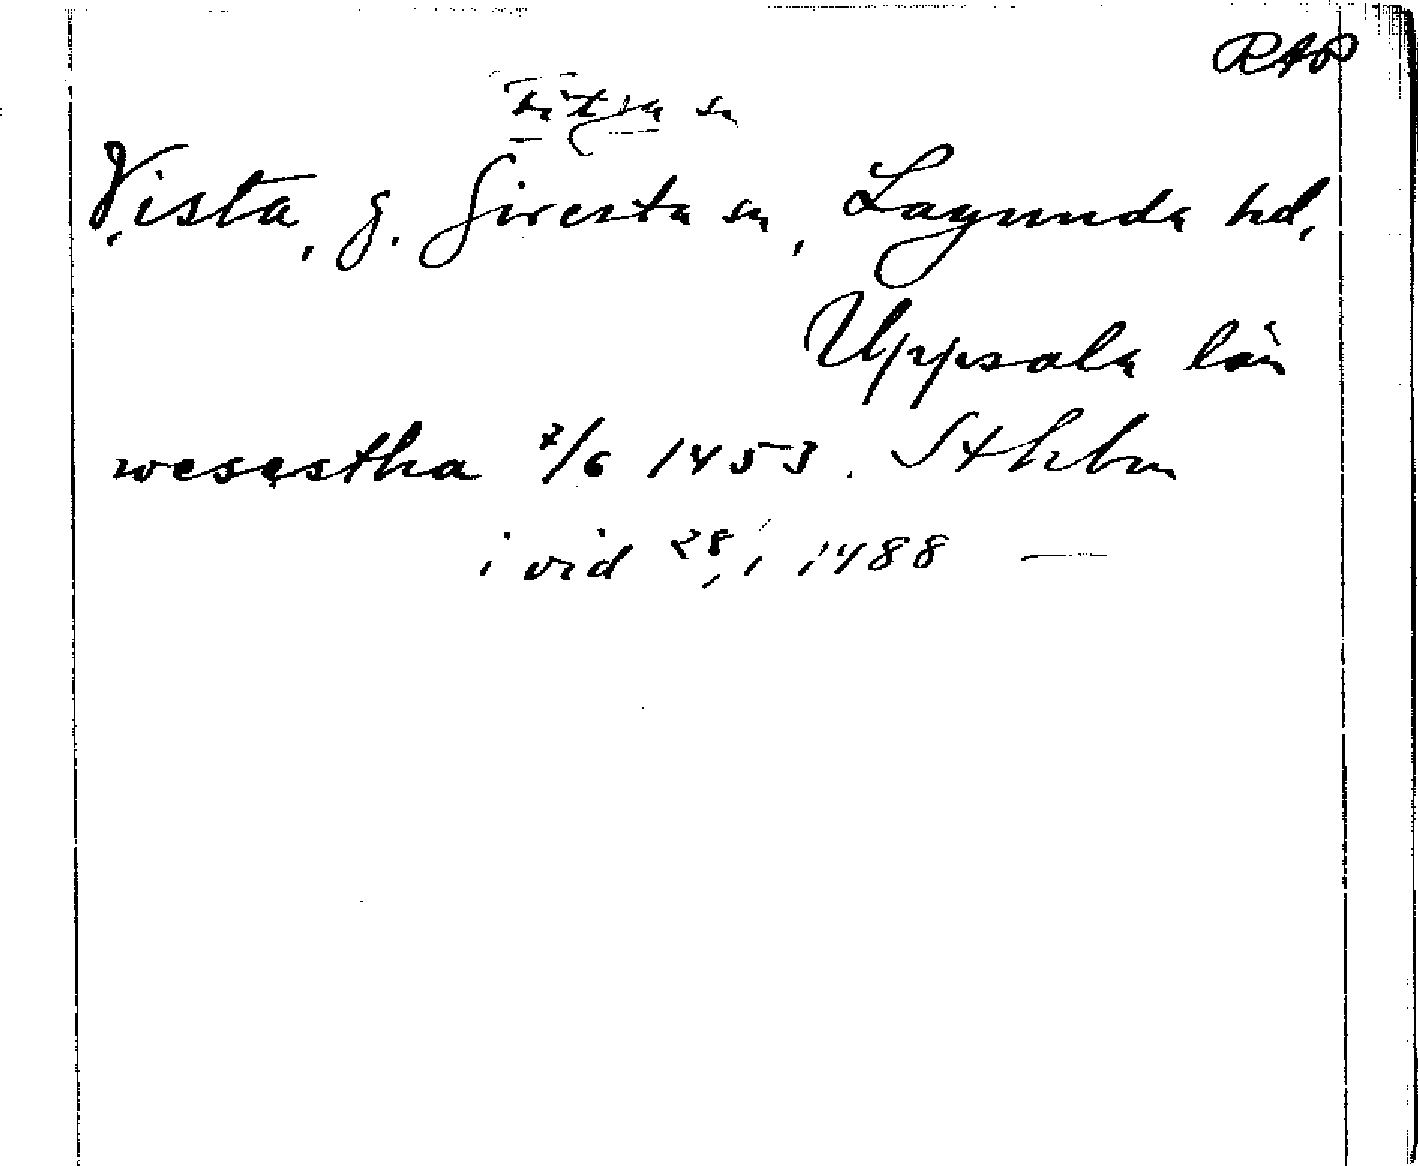 RAP
sn
Vista, g. Giresta sn, Lagunda hd,
Uppsala län
wesestha 7/6 1453. Sthlm
i vid 28/1 1488 —